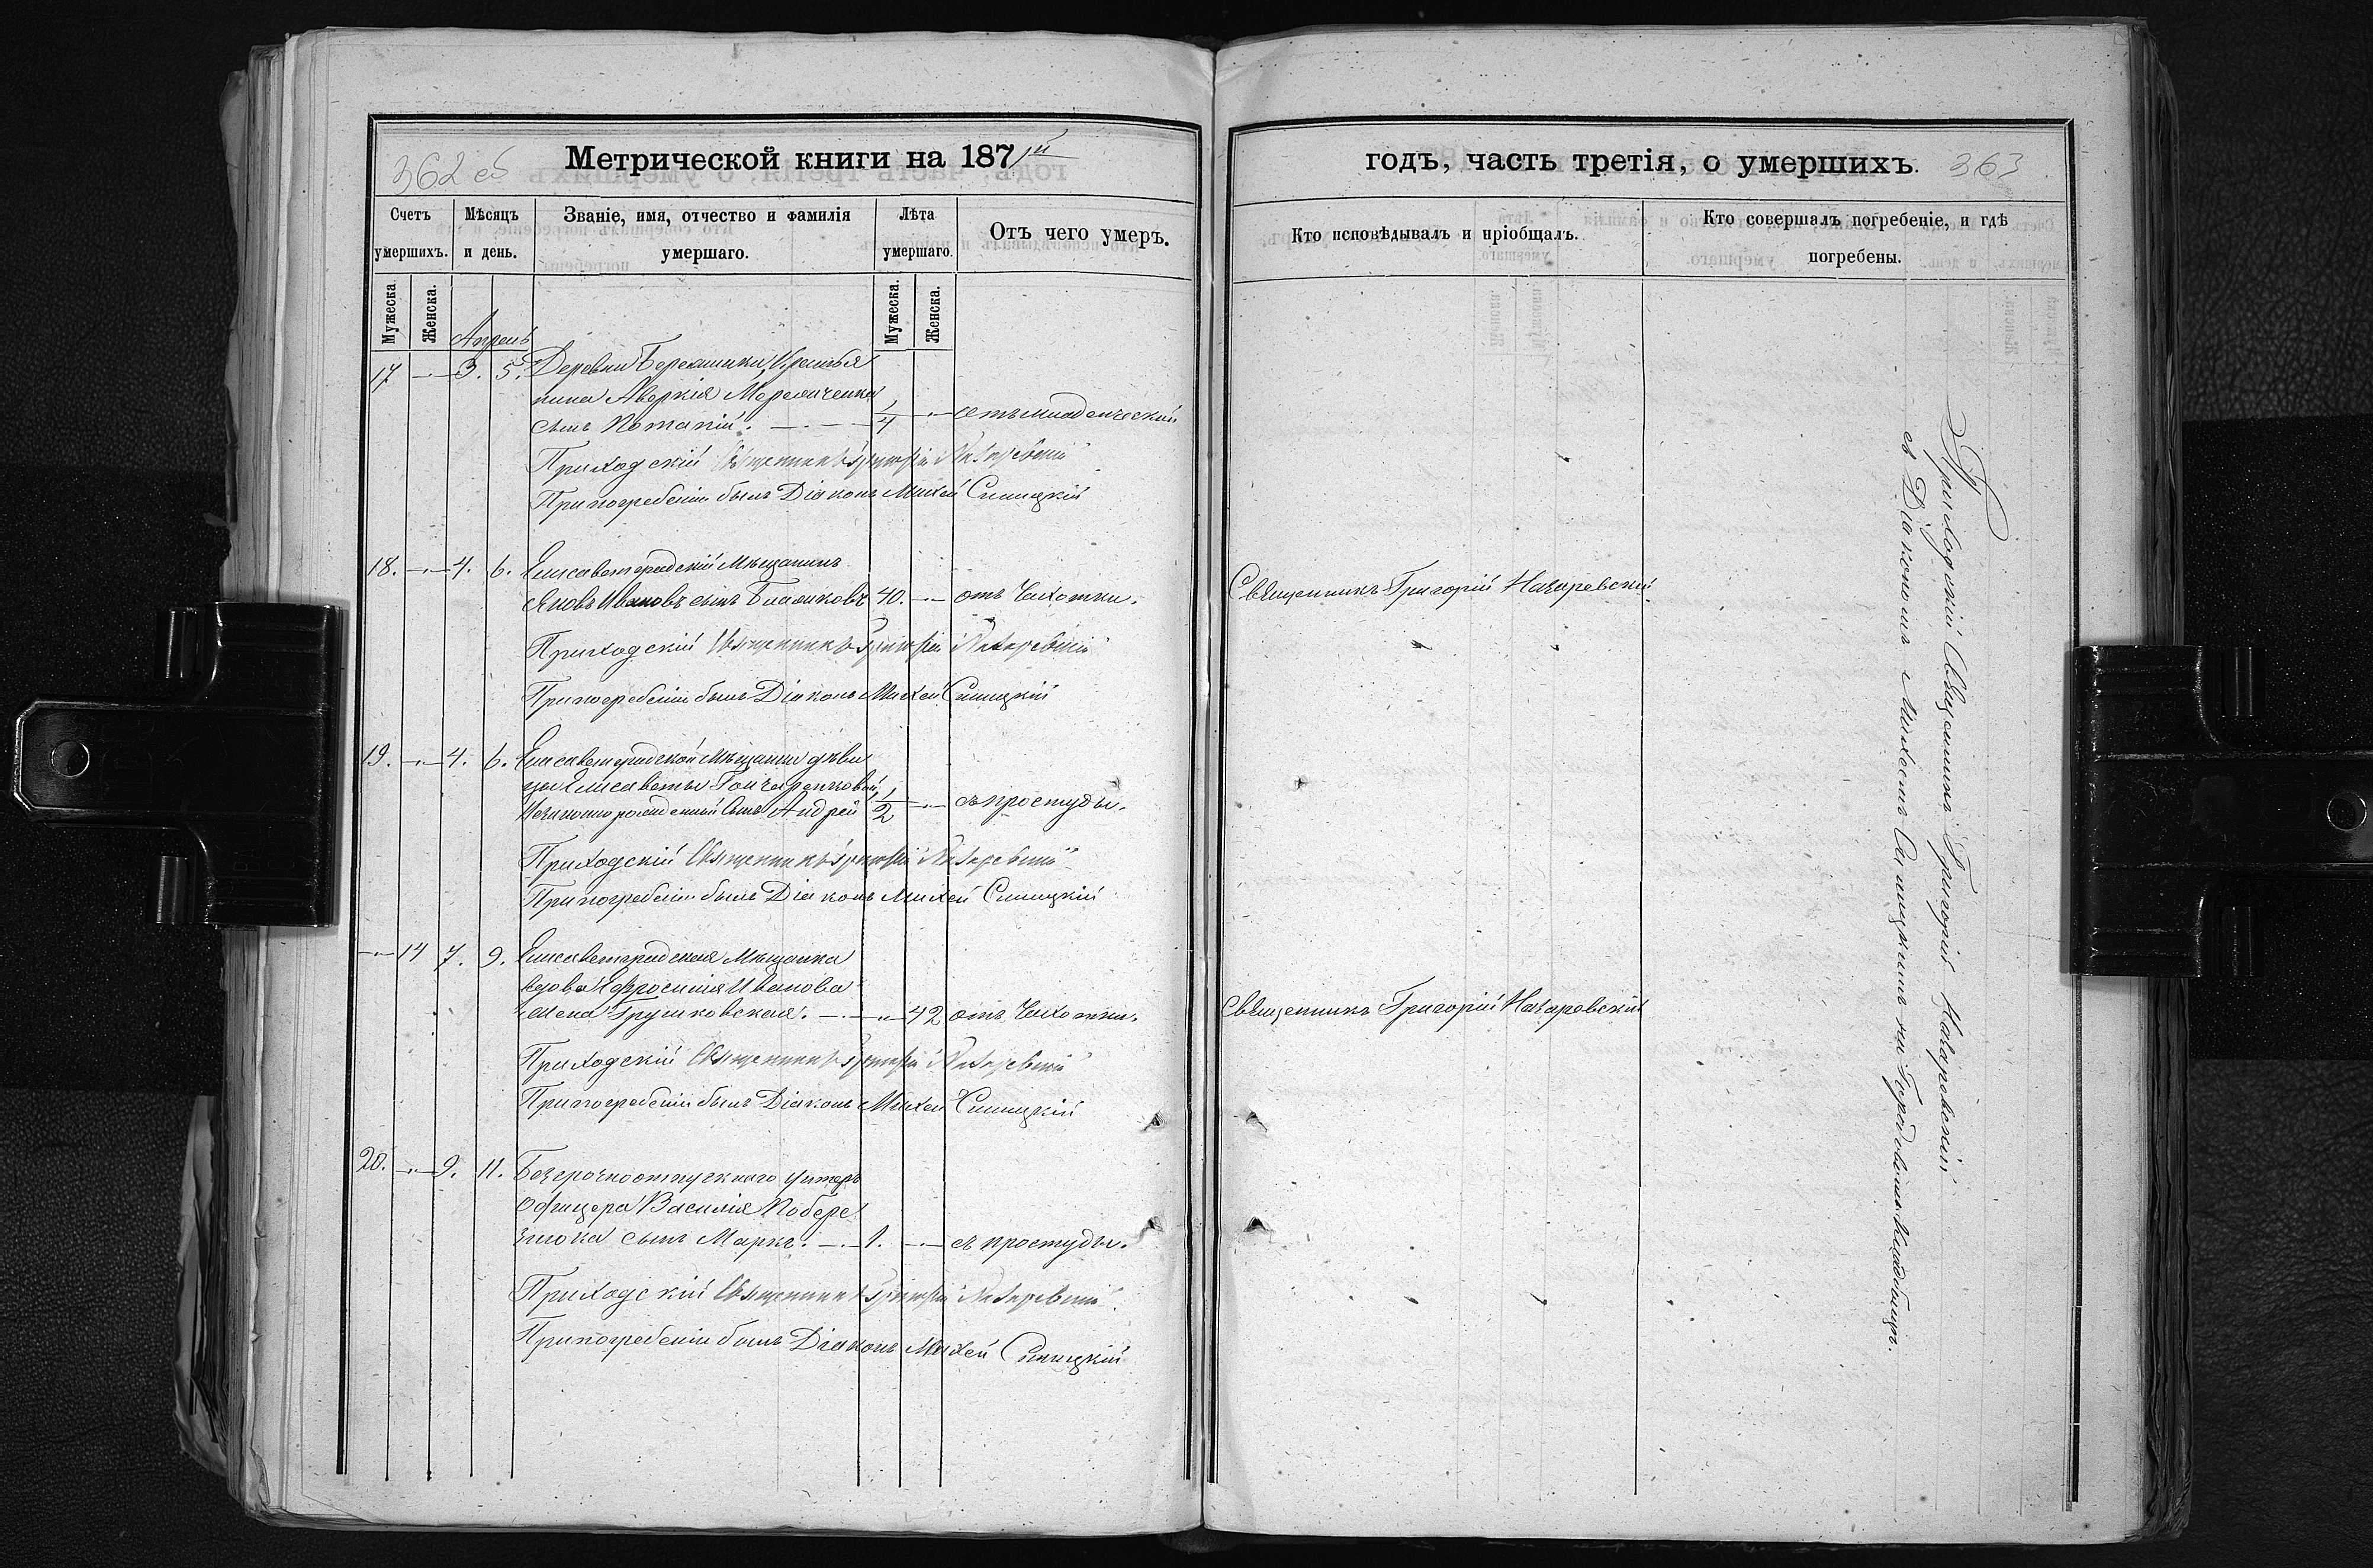 362 об
Метрической книги на 1871й
Счетъ умершихъ.
Мѣсяцъ и день.
Званіе, имя, отчество и фамилія умершаго.
Лѣта умершаго.
Отъ чего умеръ.
Мужеска.
Женска.
Мужеска.
Женска.
Апрель
17 3. 5. Деревни Крестья
нина Аверкія
сынъ Потапій. 1/4 отъ младенческой
Приходскій Священникъ Григорій Назаревскій
При погребеніи былъ Діаконъ Михей Синицкій
18. 4. 6. Елисаветградскій Мѣщанинъ
Яковъ Ивановъ сынъ 40. отъ Чахотки.
Приходскій Священникъ Григорій Назаревскій
При погребеніи былъ Діаконъ Михей Синицкій
19. 4. 6. Елисаветградской Мѣщанки дѣви
цы Елисаветы Гончаренковой
незаконно рожденный сынъ Андрей 1/2 съ простуды.
Приходскій Священникъ Григорій Назаревскій
При погребеніи былъ Діаконъ Михей Синицкій
14 7. 9. Елисаветградская Мѣщанка
вдова Ефросинія Иванова
жена Грушковская. 42 отъ Чахотки.
Приходскій Священникъ Григорій Назаревскій
При погребеніи былъ Діаконъ Михей Синицкій
20. 9. 11. Безсрочноотпускнаго Унтеръ
Офицера Василія Побере
знюка сынъ Маркъ. 1. съ простуды.
Приходскій Священникъ Григорій Назаревскій
При погребеніи былъ Діаконъ Михей Синицкій
годъ, часть третія, о умершихъ. 363
Кто исповѣдывалъ и пріобщалъ.
Кто совершалъ погребеніе, и гдѣ погребены.
Священникъ Григорій Назаревскій.
Священникъ Григорій Назаревскій
Приходскій Священникъ Григорій Назаревскій
съ Діакономъ Михеемъ Синицкимъ на Городовомъ Кладбищѣ.